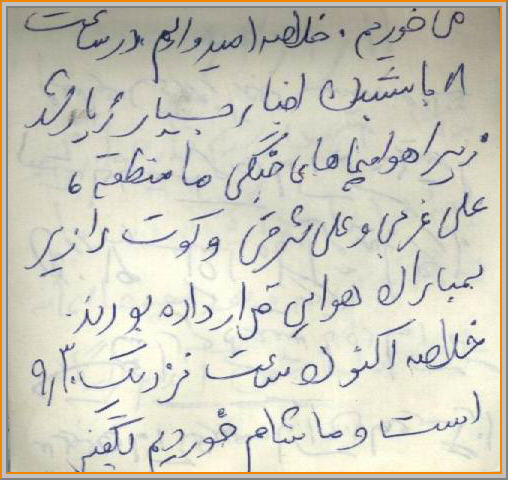 می‌خوریم. خلاصه امیدواریم در ساعت
۸ باشد اخبار بسیار زیاد شد
زیرا هواپیماهای جنگی ما منطقه
علی غربی و علی شرقی و کوت را زیر
بمباران هوایی قرار داده بودند.
خلاصه اکنون ساعت نزدیک ۹/۳۰
است و ما شام خوردیم